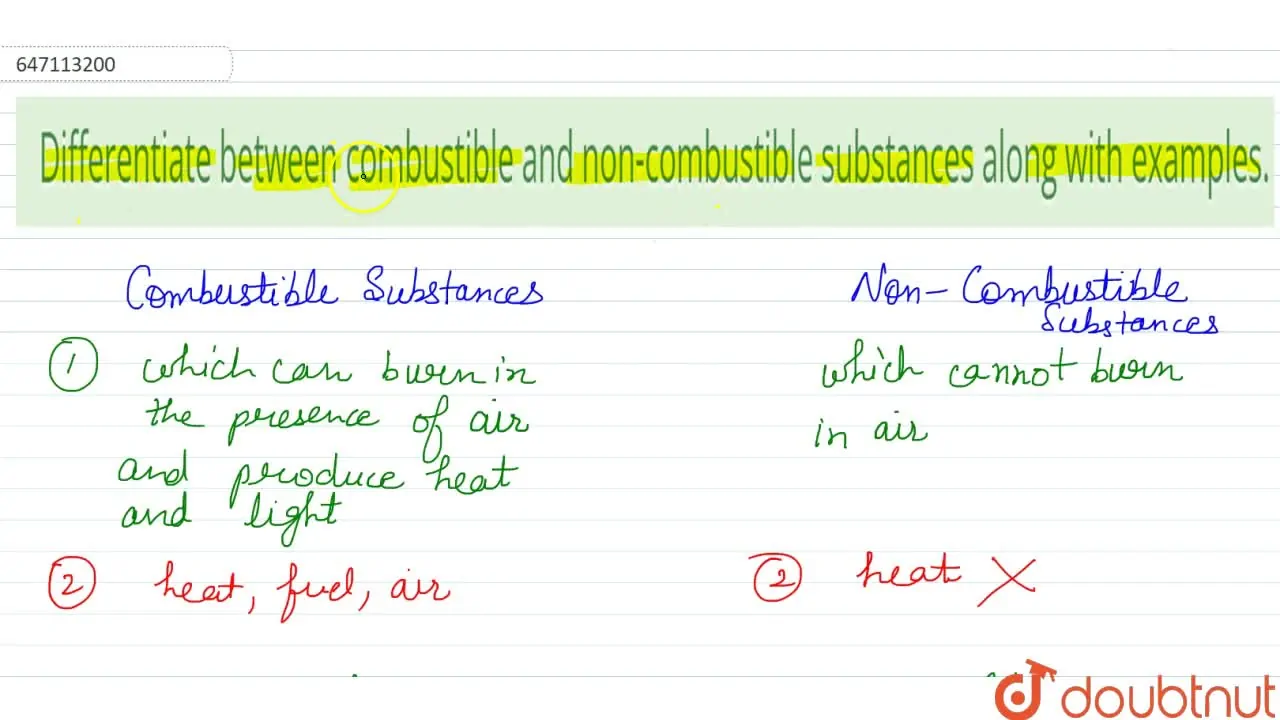 647113200
Differentiate between combustible and non-combustible substances along with examples.
Combustible Substances
Non-Combustible
Substances
① which can burn in
the presence of air
and produce heat
and light
which cannot burn
in air
② heat, fuel, air
② heat X
doubtnut